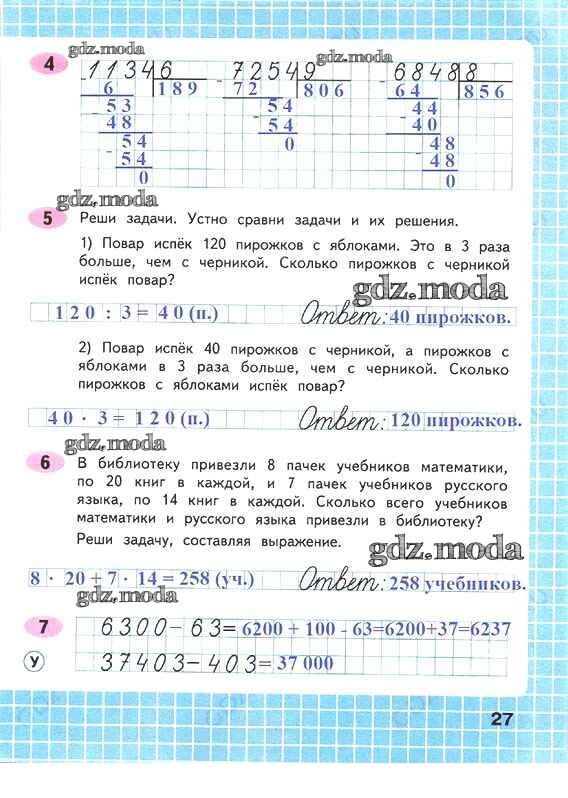 gdz.moda
gdz.moda
4
-1134 6 -7254 9 -6848 8
6 189 72 806 64 856
-53 -54 -44
48 54 40
-54 0 -48
54 48
0 0
gdz.moda
5 Реши задачи. Устно сравни задачи и их решения.
1) Повар испёк 120 пирожков с яблоками. Это в 3 раза
больше, чем с черникой. Сколько пирожков с черникой
испёк повар?
gdz.moda
120 : 3 = 40 (п.) Ответ: 40 пирожков.
2) Повар испёк 40 пирожков с черникой, а пирожков с
яблоками в 3 раза больше, чем с черникой. Сколько
пирожков с яблоками испёк повар?
40 · 3 = 120 (п.) Ответ: 120 пирожков.
gdz.moda
6 В библиотеку привезли 8 пачек учебников математики,
по 20 книг в каждой, и 7 пачек учебников русского
языка, по 14 книг в каждой. Сколько всего учебников
математики и русского языка привезли в библиотеку?
Реши задачу, составляя выражение.
gdz.moda
8 · 20 + 7 · 14 = 258 (уч.) Ответ: 258 учебников.
gdz.moda
7 6300 - 63 = 6200 + 100 - 63=6200+37=6237
У 37403 - 403 = 37 000
27